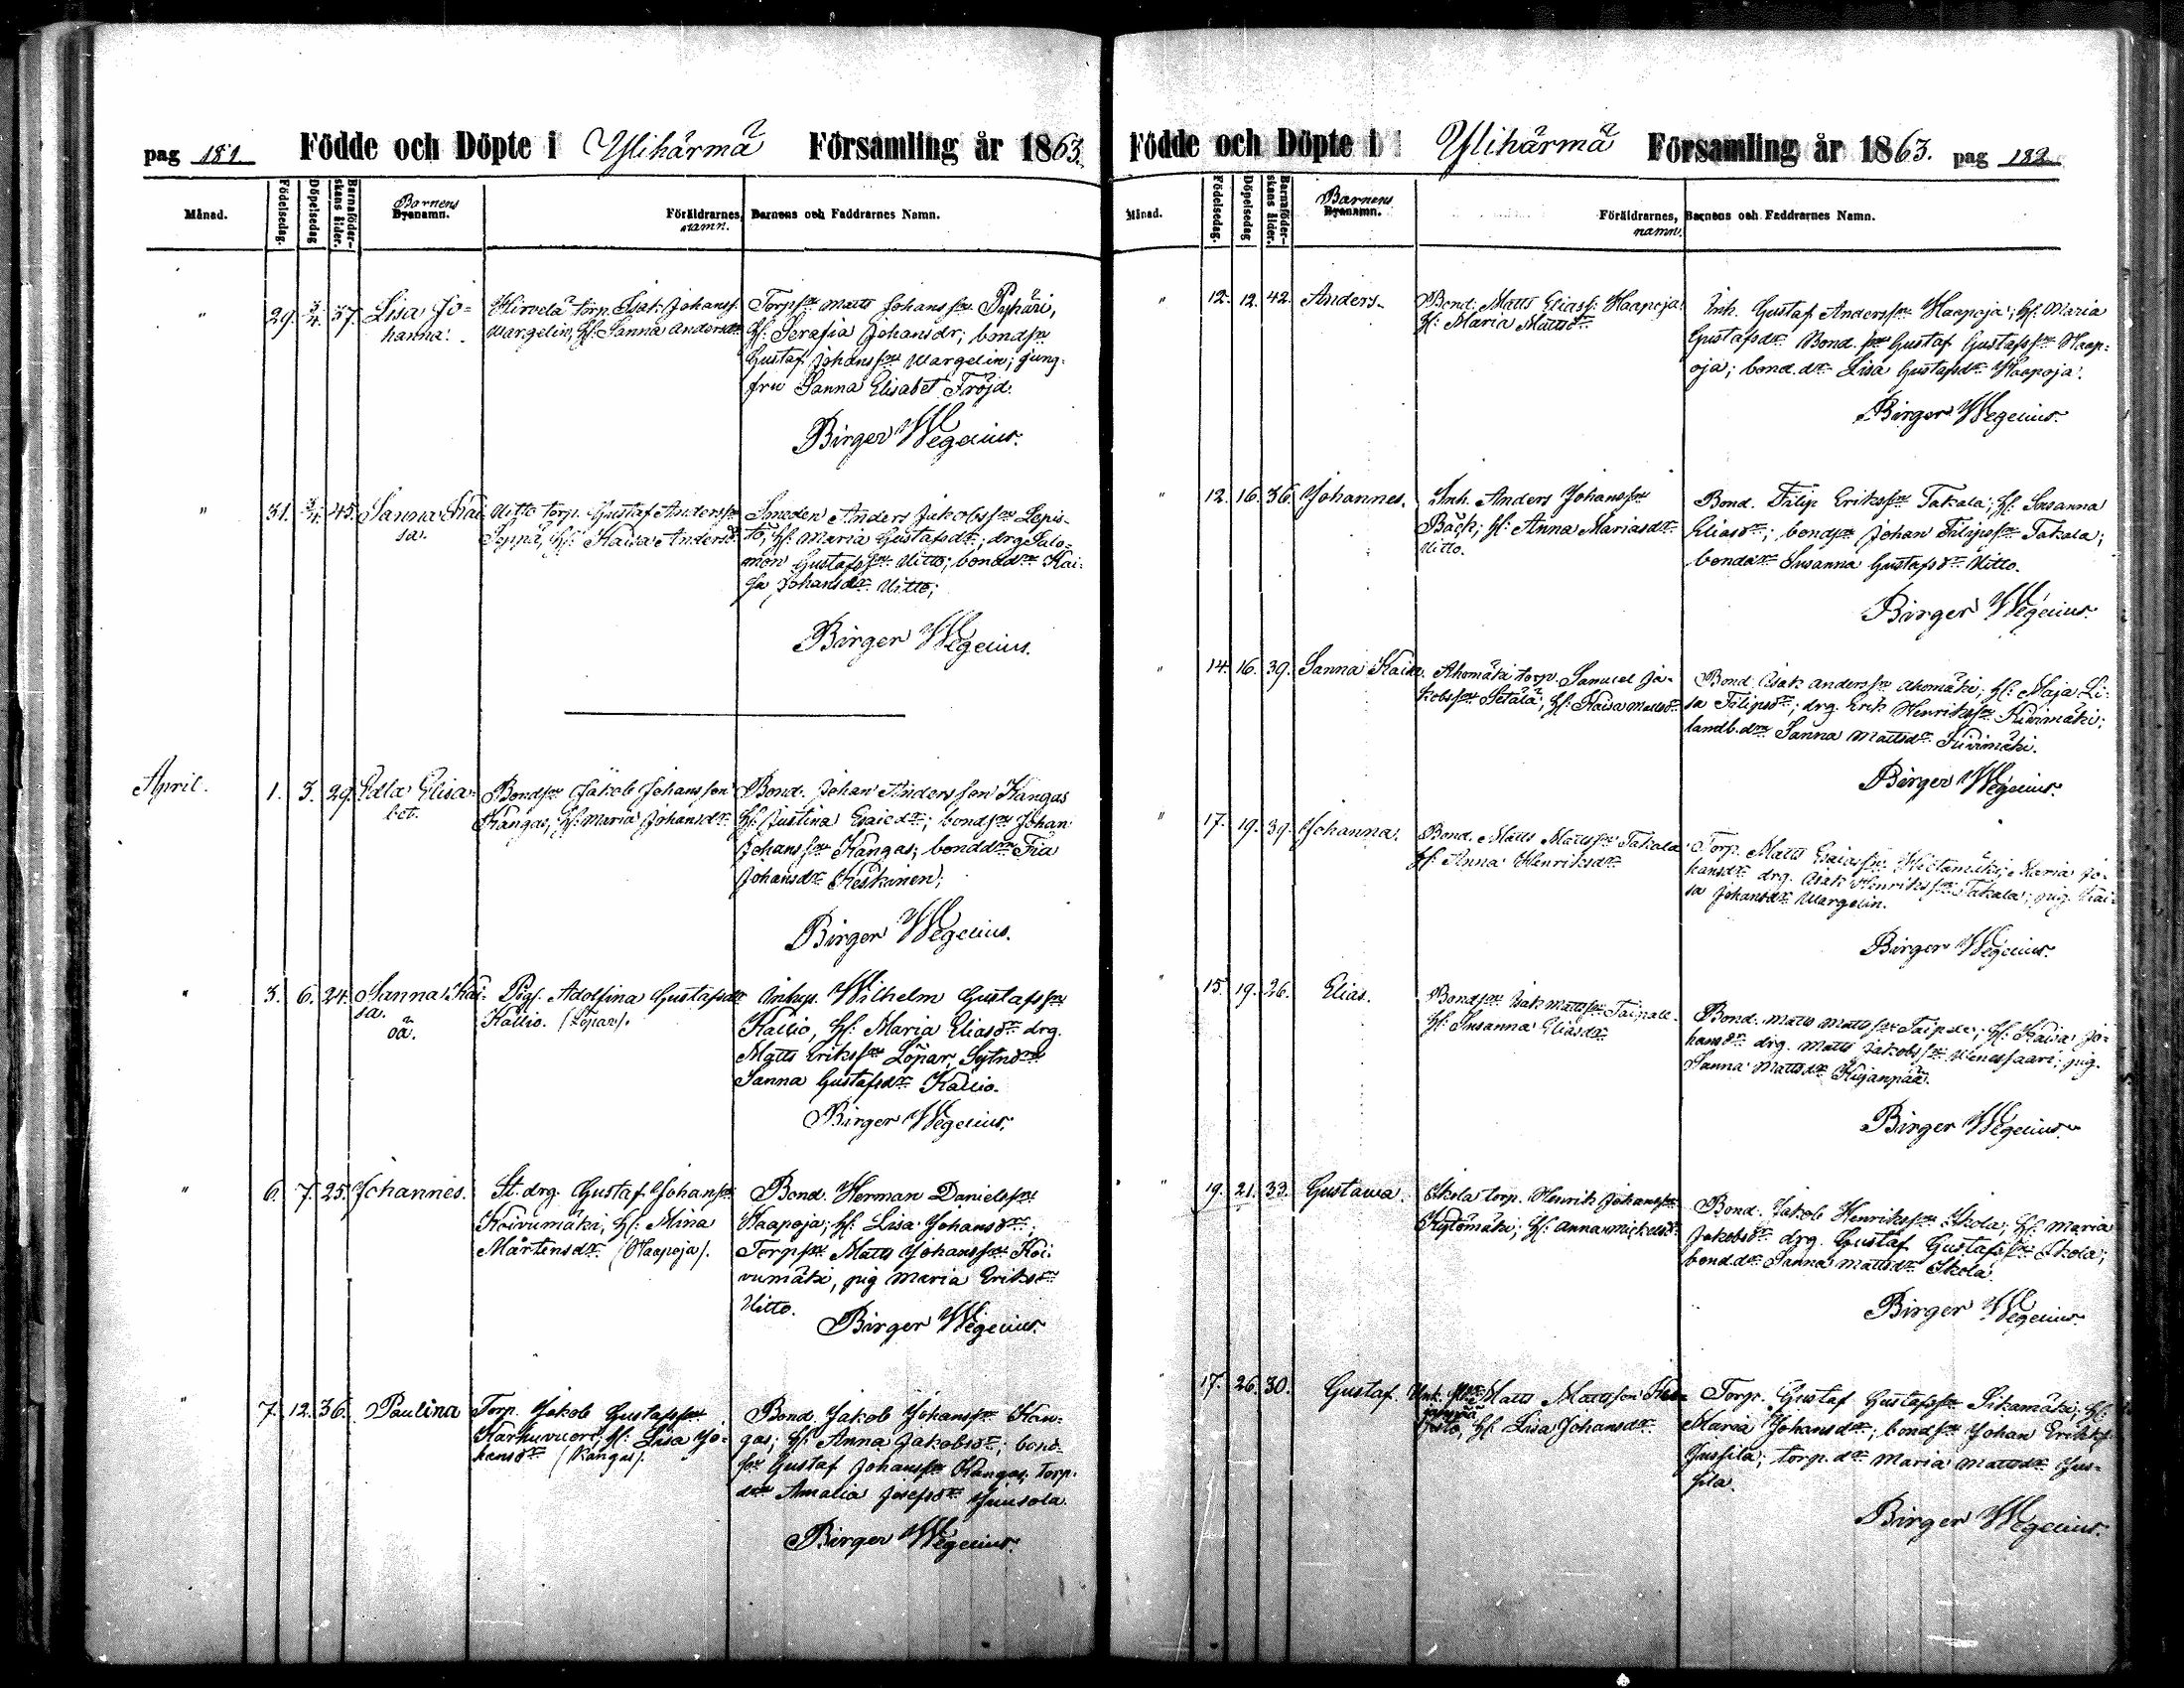 pag 181. Födde och Döpte i Ylihärmä Församling år 1863.
Månad.
Födelsedag.
Döpelsedag
Barnaföder-
skans ålder.
Barnens
Byanamn.
Föräldrarnes,
namn.
Barnens och Faddrarnes Namn.
" 29. 3/4. 37. Lisa Jo-
hanna.
Hirvelä torp. Isak Johanss.
Wargelin, H: Sanna Andersdr
Torpsn Matts Johanssn Pyhäri,
H: Serafia Johansdr; bondsn
Gustaf Johanssn Wargelin; jung-
fru Sanna Elisabet Fröjd.
Birger Wegelius.
" 31. 3/4. 45. Sanna Kai-
sa.
Uitto torp. Gustaf Anderssn
Seppä, H: Kaisa Andersdr
Smeden Anders Jakobssn Lepis-
tö, H: Maria Gustafsdr; drg Salo-
mon Gustafssn Uitto; bonddr Kai-
sa Johansdr Uitto;
Birger Wegelius.
April. 1. 3. 29. Edla Elisa-
bet.
Bondsn Jakob Johansson
Kangas, H: Maria Johansdr
Bond. Johan Andersson Kangas
H: Justina Esaiedr; bondsn Johan
Johanssn Kangas; bonddr Fia
Johansdr Keskinen;
Birger Wegelius.
" 3. 6. 24. Sanna Kai-
sa.
oä.
Pig. Adolfina Gustafsdr
Kallio. (Löpar).
Inhys. Wilhelm Gustafssn
Kallio, H: Maria Eliasdr drg.
Matts Erikssn Löpar, Sytndr
Sanna Gustafsdr Kallio.
Birger Wegelius.
" 6. 7. 25. Johannes.
St. drg. Gustaf Johanssn
Koivumäki, H: Mina
Mårtensdr (Haapoja).
Bond. Herman Danielssn
Haapoja; H: Lisa Johansdr;
Torpsn Matts Johanssn Koi-
vumäki, pig Maria Eriksdr
Uitto.
Birger Wegelius.
" 7. 12. 36. Paulina
Torp. Jakob Gustafssn
Karhuvuori, H: Lisa Jo-
hansdr (Kangas).
Bond. Jakob Johanssn Kan-
gas; H: Anna Jakobsdr; bond-
sn Gustaf Johanssn Kangas, torp.
dr Amalia Josefsdr Juusola.
Birger Wegelius.
Födde och Döpte i Ylihärmä Församling år 1863. pag 182.
Månad.
Födelsedag.
Döpelsedag
Barnaföder-
skans ålder.
Barnens
Byanamn.
Föräldrarnes,
namn.
Barnens och Faddrarnes Namn.
" 12. 12. 42. Anders.
Bond. Matts Eliass. Haapoja
H: Maria Mattsdr
Inh. Gustaf Anderssn Haapoja; H: Maria
Gustafsdr Bond. sn Gustaf Gustafssn Haap-
oja; bond. dr Lisa Gustafsdr Haapoja.
Birger Wegelius.
" 12. 16. 36. Johannes.
Inh. Anders Johanssn
Bäck; H: Anna Mariasdr
Uitto.
Bond. Filip Erikssn Takala; H: Susanna
Eliasdr; bondsn Johan Filipssn Takala;
bonddr Susanna Gustafsdr Uitto.
Birger Wegelius.
" 14. 16. 39. Sanna Kaisa.
Ahomäki torp. Samuel Ja-
kobssn Setälä, H: Kaisa Mattsdr
Bond. Isak Anderssn Ahomäki; H: Maja Li-
sa Filipsdr; drg. Erik Henrikssn Kivimäki;
landb. dr Sanna Mattsdr Kivimäki.
Birger Wegelius.
" 17. 19. 39. Johanna.
Bond. Matts Mattssn Takala
H: Anna Henriksdr
Torp. Matts Esaiassn Hietamäki; Maria Jo-
hansdr drg. Isak Henrikssn Takala; pig. Kai-
sa Johansdr Wargelin.
Birger Wegelius.
" 15. 19. 26. Elias.
Bondsn Isak Mattssn Taipale.
H: Susanna Eliasdr
Bond. Matts Mattssn Taipale; H: Kaisa Jo-
hansdr drg. Matts Jakobssn Wenessaari; pig.
Sanna Mattsdr Kujanpää.
Birger Wegelius.
" 19. 21. 33. Gustava.
Ekola torp. Henrik Johanssn
Kytömäki; H: Anna Mickelsdr
Bond. Jakob Henrikssn Ekola; H: Maria
Jakobsdr drg. Gustaf Gustafssn Ekola;
bond.dr Sanna Mattsdr Ekola.
Birger Wegelius.
" 17. 26. 30. Gustaf.
Matts Mattsson
H: Lisa Johansdr
Torp. Gustaf Gustafssn Sikamäki; H:
Maria Johansdr; bondsn Johan Erikss.
Jussila; torp. dr Maria Mattsdr Jus-
sila.
Birger Wegelius.